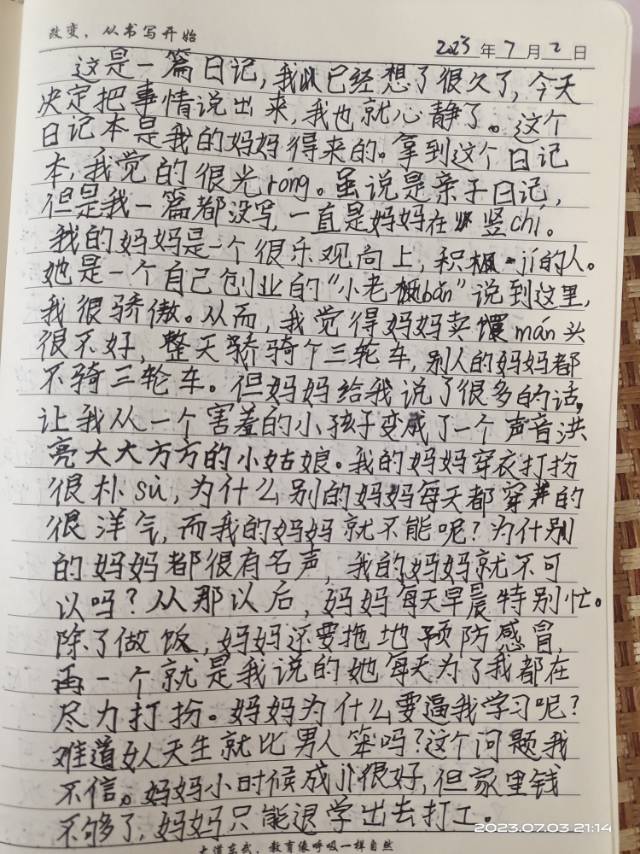 改变，从书写开始
2023年7月2日
这是一篇日记，我已经想了很久了，今天
决定把事情说出来，我也就心静了。这个
日记本是我的妈妈得来的。拿到这个日记
本，我觉的很光róng。虽说是亲子日记，
但是我一篇都没写，一直是妈妈在竖chí。
我的妈妈是一个很乐观向上，积jí的人。
她是一个自己创业的“小老bǎn”说到这里，
我很骄傲。从而，我觉得妈妈卖馍mán头
很不好，整天骑个三轮车，别人的妈妈都
不骑三轮车。但妈妈给我说了很多的话，
让我从一个害羞的小孩子变成了一个声音洪
亮大大方方的小姑娘。我的妈妈穿衣打扮
很朴sù，为什么别的妈妈每天都穿的
很洋气，而我的妈妈就不能呢？为什别
的妈妈都很有名声，我的妈妈就不可
以吗？从那以后，妈妈每天早晨特别忙。
除了做饭，妈妈还要拖地预防感冒，
再一个就是我说的她每天为了我都在
尽力打扮。妈妈为什么要逼我学习呢？
难道女人天生就比男人笨吗？这个问题我
不信。妈妈小时候成川很好，但家里钱
不够了，妈妈只能退学出去打工。
2023.07.03 21:14
教育像呼吸一样自然